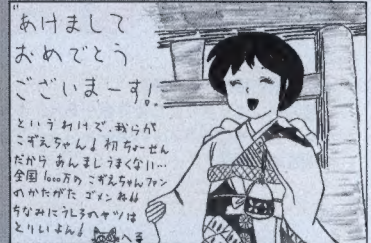 あけまして
おめでとう
ございまーす!
というわけで、我らが
こずえちゃん! 初ちょーせん
だから あんましうまくない…
全国1000万のこずえちゃんファン
のかたがた ゴメンね
ちなみにうしろのヤツは
とりいよん!